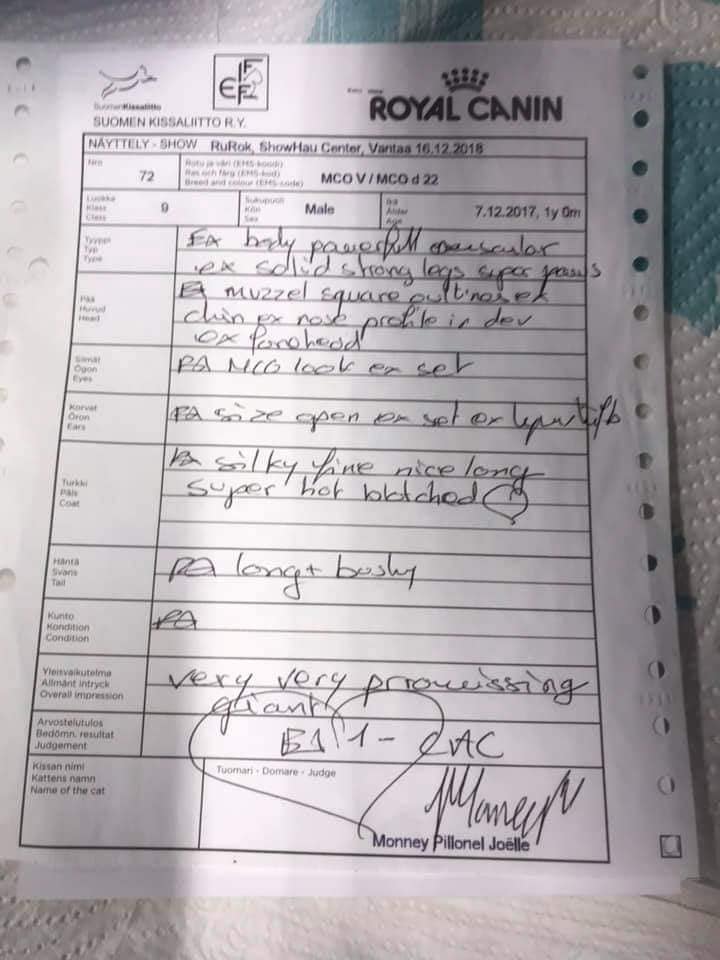 FIFe
SuomenKissaliitto
ROYAL CANIN
SUOMEN KISSALIITTO R.Y.
NÄYTTELY - SHOW RuRok, ShowHau Center, Vantaa 16.12.2018
Nro
72
Rotu ja väri (EMS-koodi)
Ras och färg (EMS-kod)
Breed and colour (EMS-code)
MCO V / MCO d 22
Luokka
Klass
Class
9
Sukupuoli
Kön
Sex
Male
Ikä
Ålder
Age
7.12.2017, 1y 0m
Tyyppi
Typ
Type
Ex body powerfull muscular
ex solid strong legs super paws
Pää
Huvud
Head
Ex muzzel square outlines ex
chin ex nose profile in dev
ex forehead
Silmät
Ögon
Eyes
PA MCO look ex set
Korvat
Öron
Ears
PA size open ex set ex
Turkki
Päls
Coat
PA silky fine nice long
super hot blotched
Häntä
Svans
Tail
PA long + bushy
Kunto
Kondition
Condition
PA
Yleisvaikutelma
Allmänt intryck
Overall impression
very very prromissing
giant
Arvostelutulos
Bedömn. resultat
Judgement
Ex 1 - CAC
Kissan nimi
Kattens namn
Name of the cat
Tuomari - Domare - Judge
Monney Pillonel Joëlle